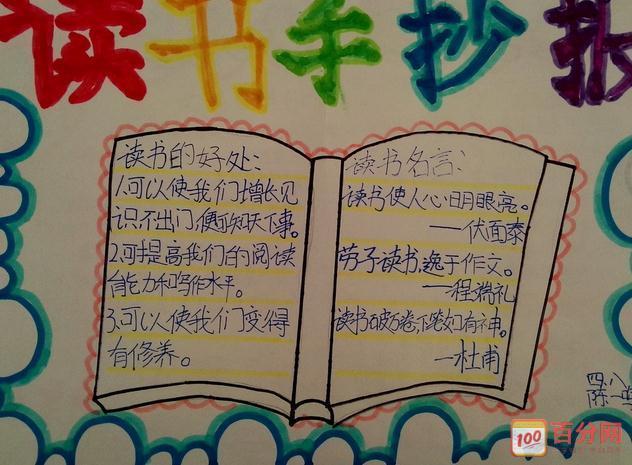 读书手抄报
读书的好处:
1.可以使我们增长见
识,不出门,便可知天下事。
2.可提高我们的阅读
能力和写作水平。
3.可以使我们变得
有修养。
读书名言:
读书使人心明眼亮。
——伏面泰
劳于读书,逸于作文。
——程端礼
读书破万卷,下笔如有神。
—杜甫
四八
陈一
100
百分网